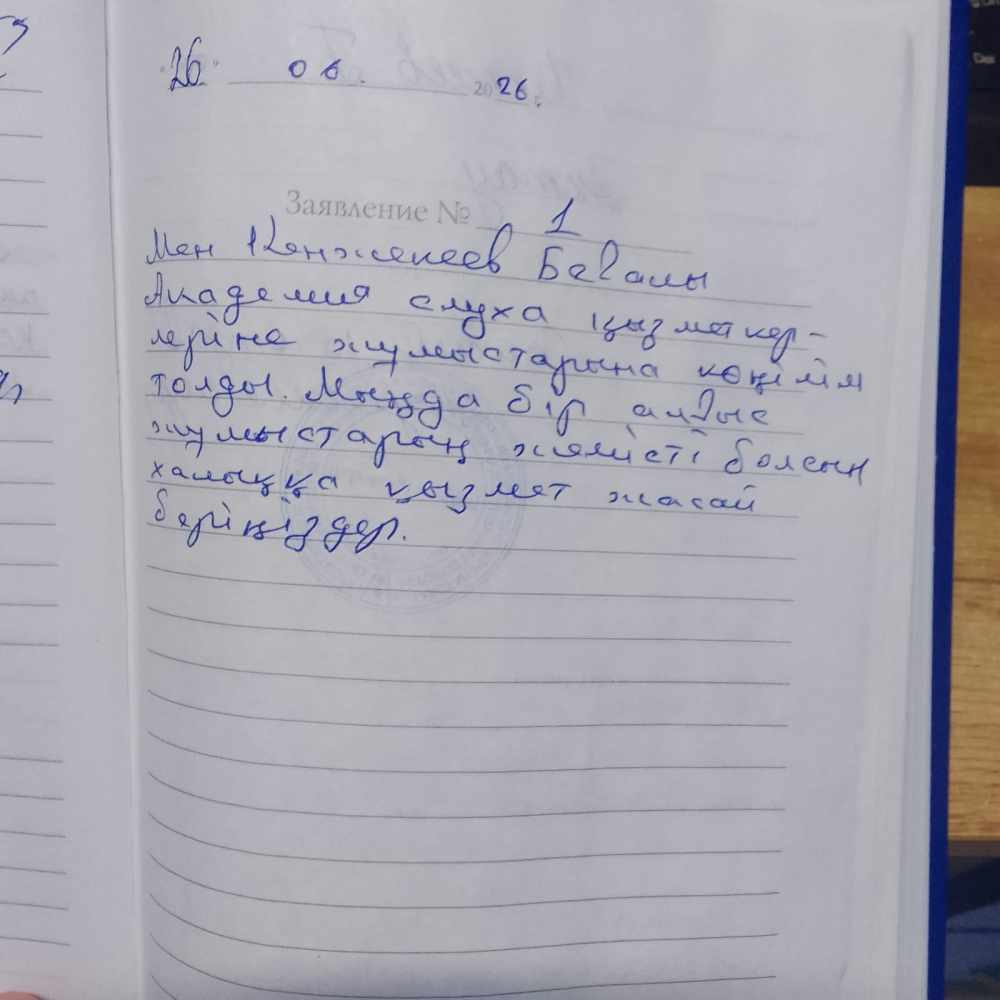 26. 06. 2026 г.
Заявление № 1
Мен Кенжекеев Бағалы
Академия слуха қызметкер-
леріне жұмыстарына көңілім
толды. Мыңда бір алғыс
жұмыстарың жемісті болсын
халыққа қызмет жасай
беріңіздер.